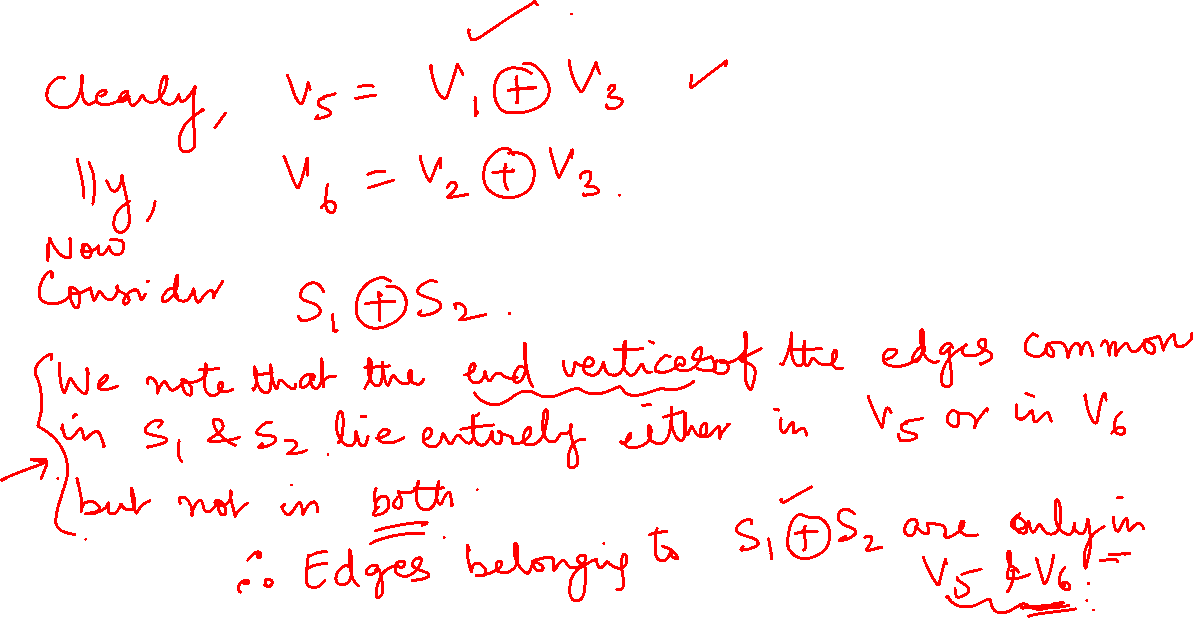 Clearly, V₅ = V₁ ⊕ V₃ ✓
||ly, V₆ = V₂ ⊕ V₃.
Now
Consider S₁ ⊕ S₂.
We note that the end vertices of the edges common
in S₁ & S₂ lie entirely either in V₅ or in V₆
but not in both.
∴ Edges belonging to S₁ ⊕ S₂ are only in
V₅ & V₆.